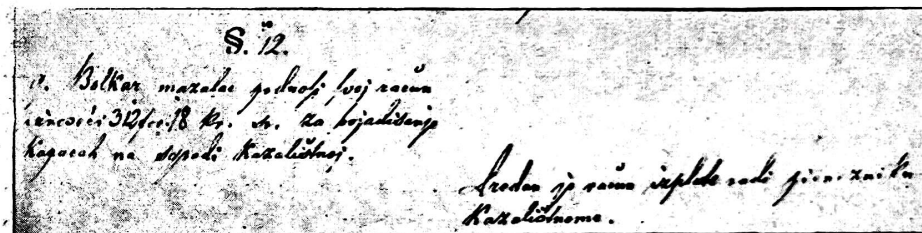 §. 12.
Bolkar mazalac podnosi svoj račun
iznoseći 312 for. 18 kr. sr. za bojadisanje
kapacah na zgradi kazalištnoj.
Predan je račun izplate radi pienezniku
Kazalištnome.